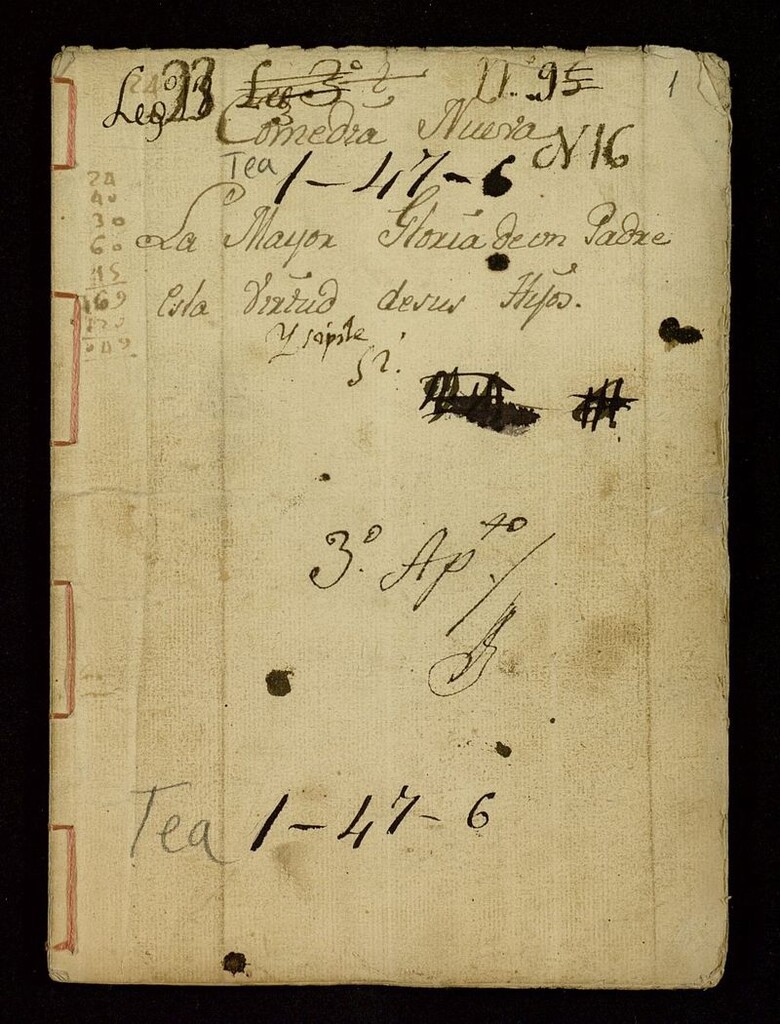 Leg.º 23 1
Comedia Nueva N 16
Tea 1-47-6
24
40
30
60
45
169
La Mayor Gloria de vn Padre
es la Virtud de sus Hijos.
3.º Ap.to
Tea 1-47-6